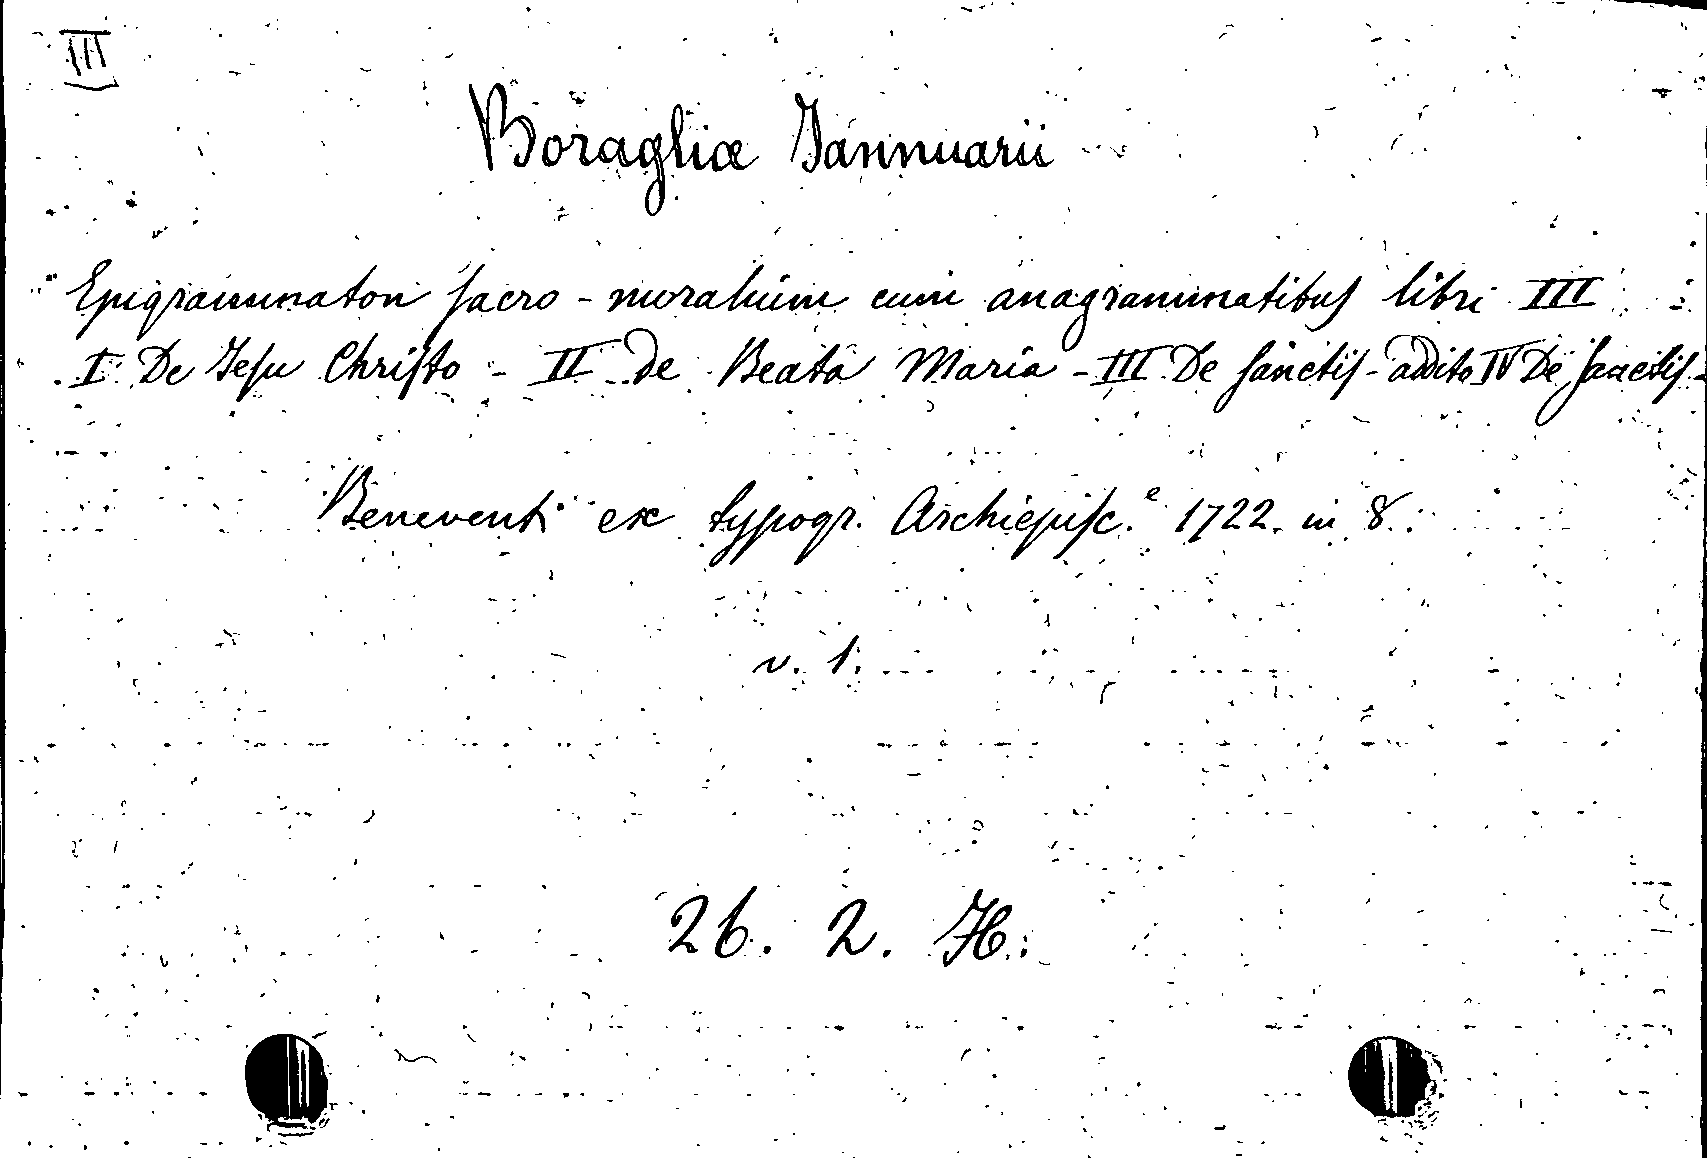 III
Boragliæ Jannuarii
" Epigrammaton sacro - moralium cum anagrammatibus libri III
I De Jesu Christo - II de Beata Maria - III De sanctis - addito IV De sanctis -
Beneventi ex typogr. Archiepisc.e 1722. in 8.
v. 1.
26. 2. H.